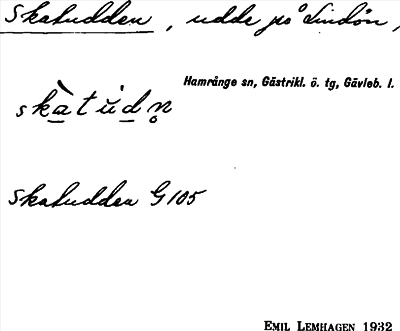 Skatudden, udde på Lindön,
Hamrånge sn, Gästrikl. ö. tg, Gävleb. l.
skàtùdn̥
Skatudden G 105
EMIL LEMHAGEN 1932